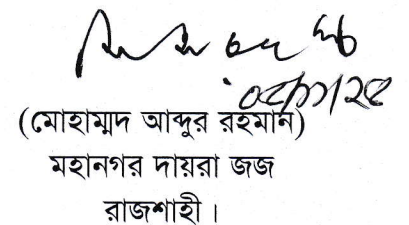 (মোহাম্মদ আব্দুর রহমান)
মহানগর দায়রা জজ
রাজশাহী।